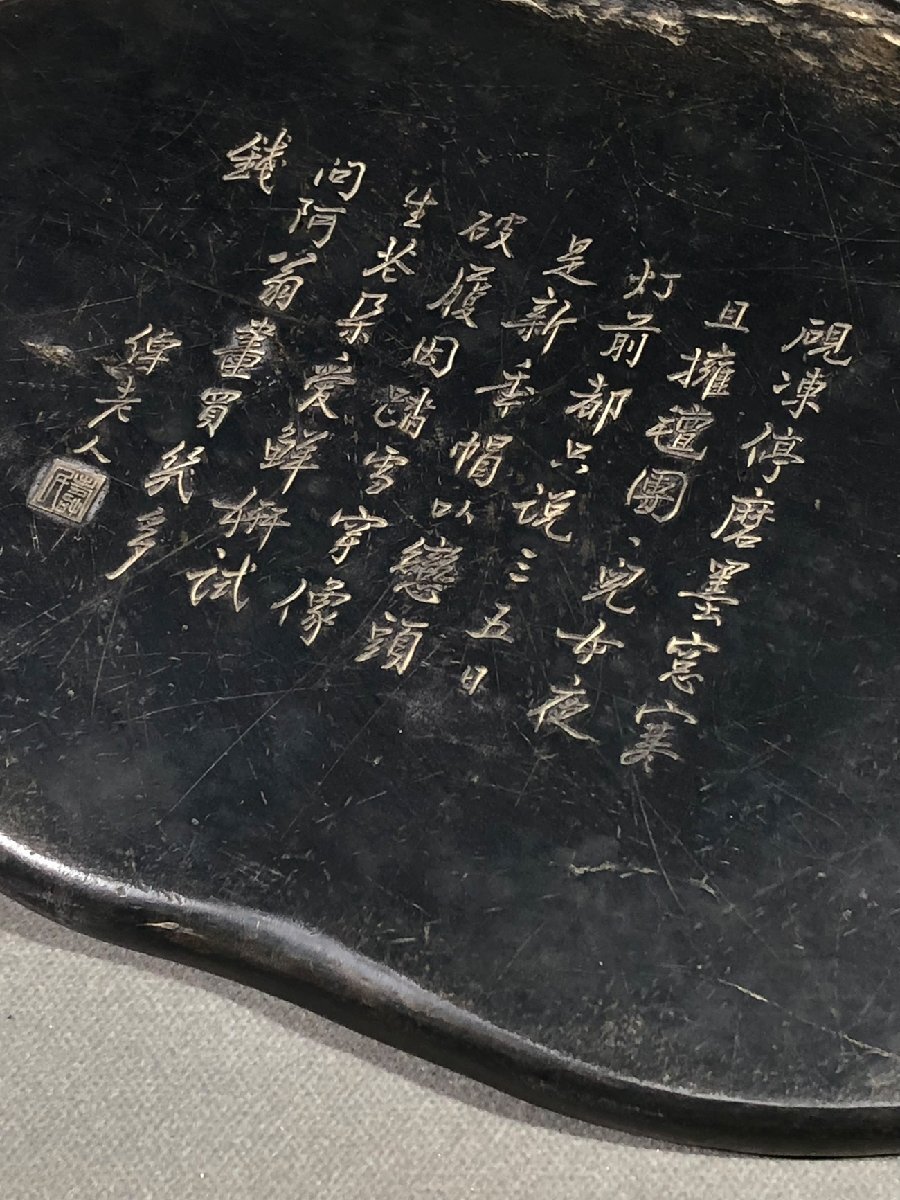 硯凍停磨墨窓寒
且擁氊團、兒女夜
灯前都只説三五日
是新年帽以戀頭
破履因踏雪穿像
生花朵愛鮮妍試
問阿翁畫買幾多
錢
老人